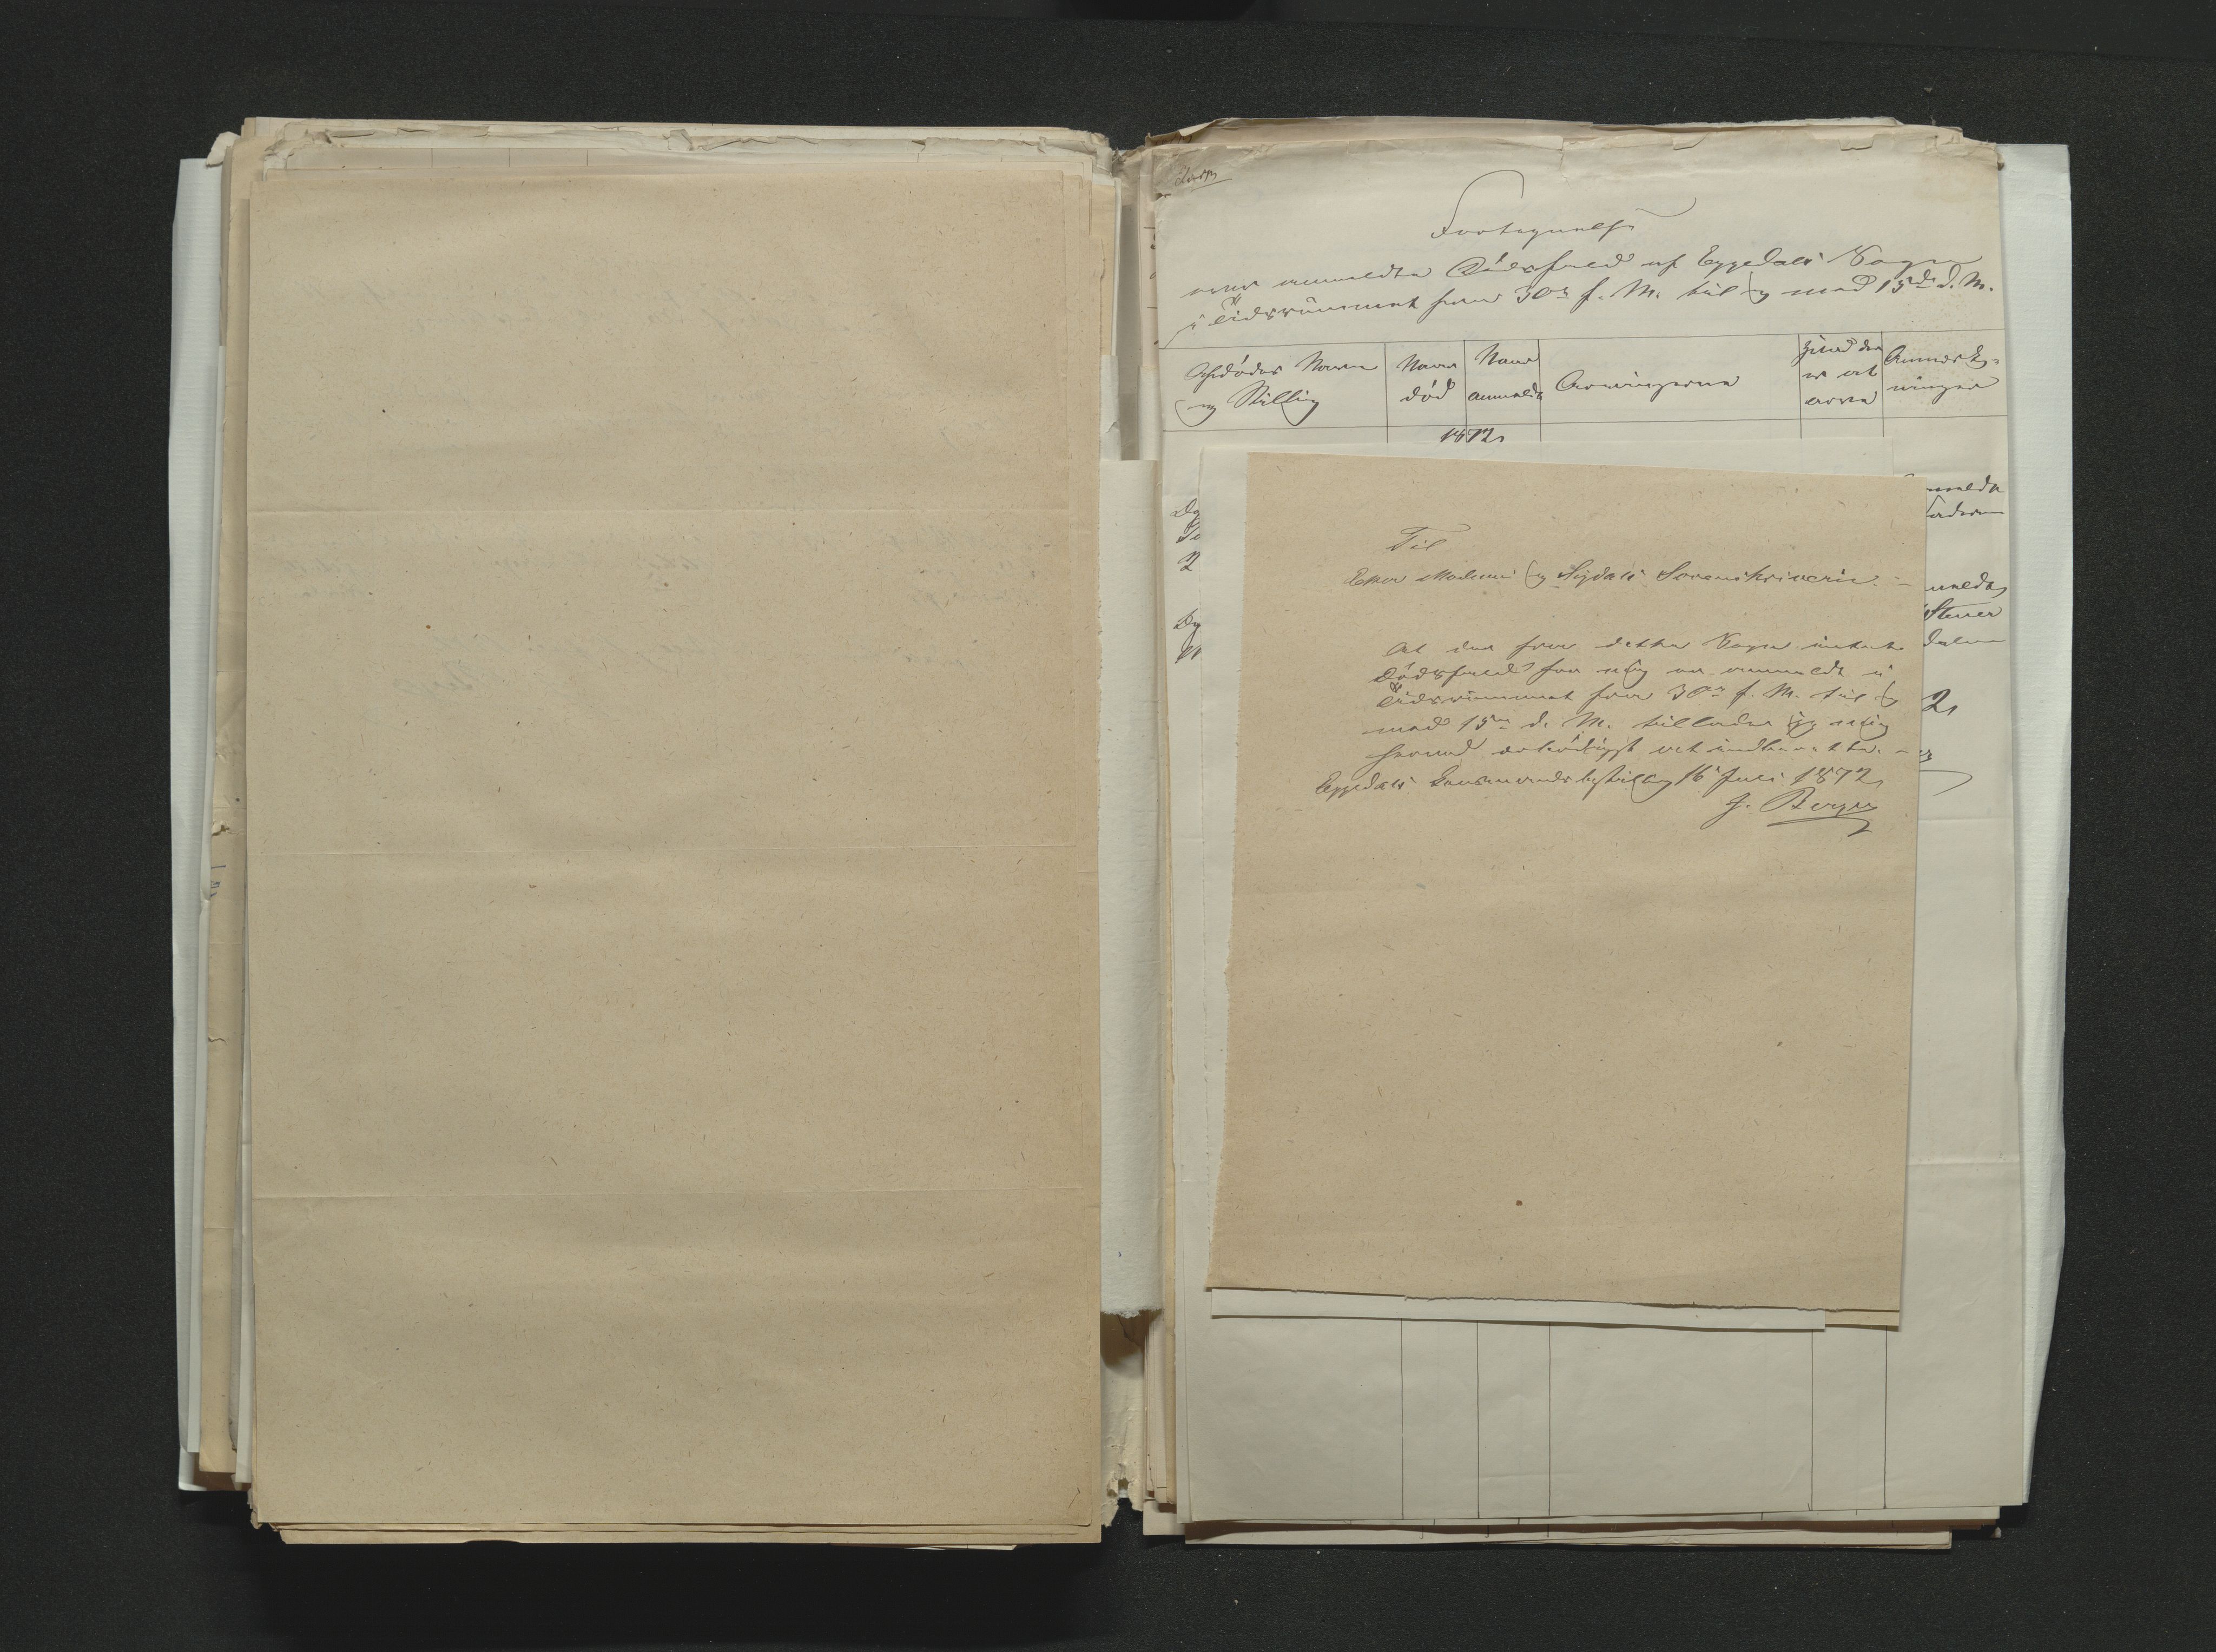 Fortegnelse
over anmeldte Dödsfald af Eggedals Sogn
i Tidsrummet fra 30te f. M. til og med 15de d. M.
Afdödes Navn
og Stilling
Naar
död
Naar
anmeldt
Arvingerne
Hvad der
er at
arve
Anmærk-
ninger
1872
anmeldt
Dg
2
Til
Eker Modum og Sigdals Sorenskriveri. -
At der fra dette Sogn intet
Dödsfald for mig er anmeldt i
Tidsrummet fra 30te f. M. til og
med 15de d. M. tillader jeg mig
herved ærbödigst at indberette. -
Eggedals Lensmandsbestilling 16 Juli 1872
J. Berger
anmeldt
Stener
2